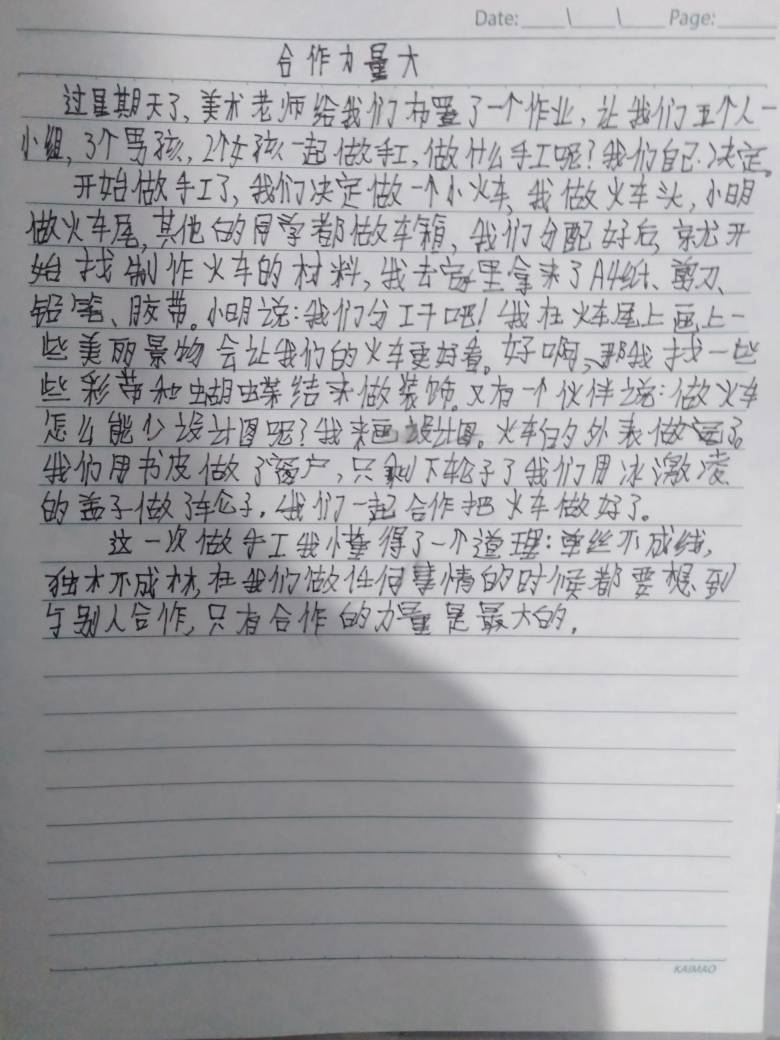 Date: \ \ Page:
合作力量大
过星期天了,美术老师给我们布置了一个作业,让我们五个人一
小组,3个男孩,2个女孩一起做手工,做什么手工呢?我们自己决定。
开始做手工了,我们决定做一个小火车,我做火车头,小明
做火车尾,其他的同学都做车箱,我们分配好后,就开
始找制作火车的材料,我去家里拿来了A4纸、剪刀、
铅笔、胶带。小明说:我们分工干吧!我在火车尾上画上一
些美丽景物会让我们的火车更好看。好啊,那我找一些
些彩带和蝴蝶结来做装饰。又有一个伙伴说:做火车
怎么能少设计图呢?我来画设计图。火车的外表做完了
我们用书皮做了窗户,只剩下轮子了我们用冰激凌
的盖子做了轮子,我们一起合作把火车做好了。
这一次做手工我懂得了一个道理:单丝不成线,
独木不成林,在我们做任何事情的时候都要想到
与别人合作,只有合作的力量是最大的。
KAIMAO